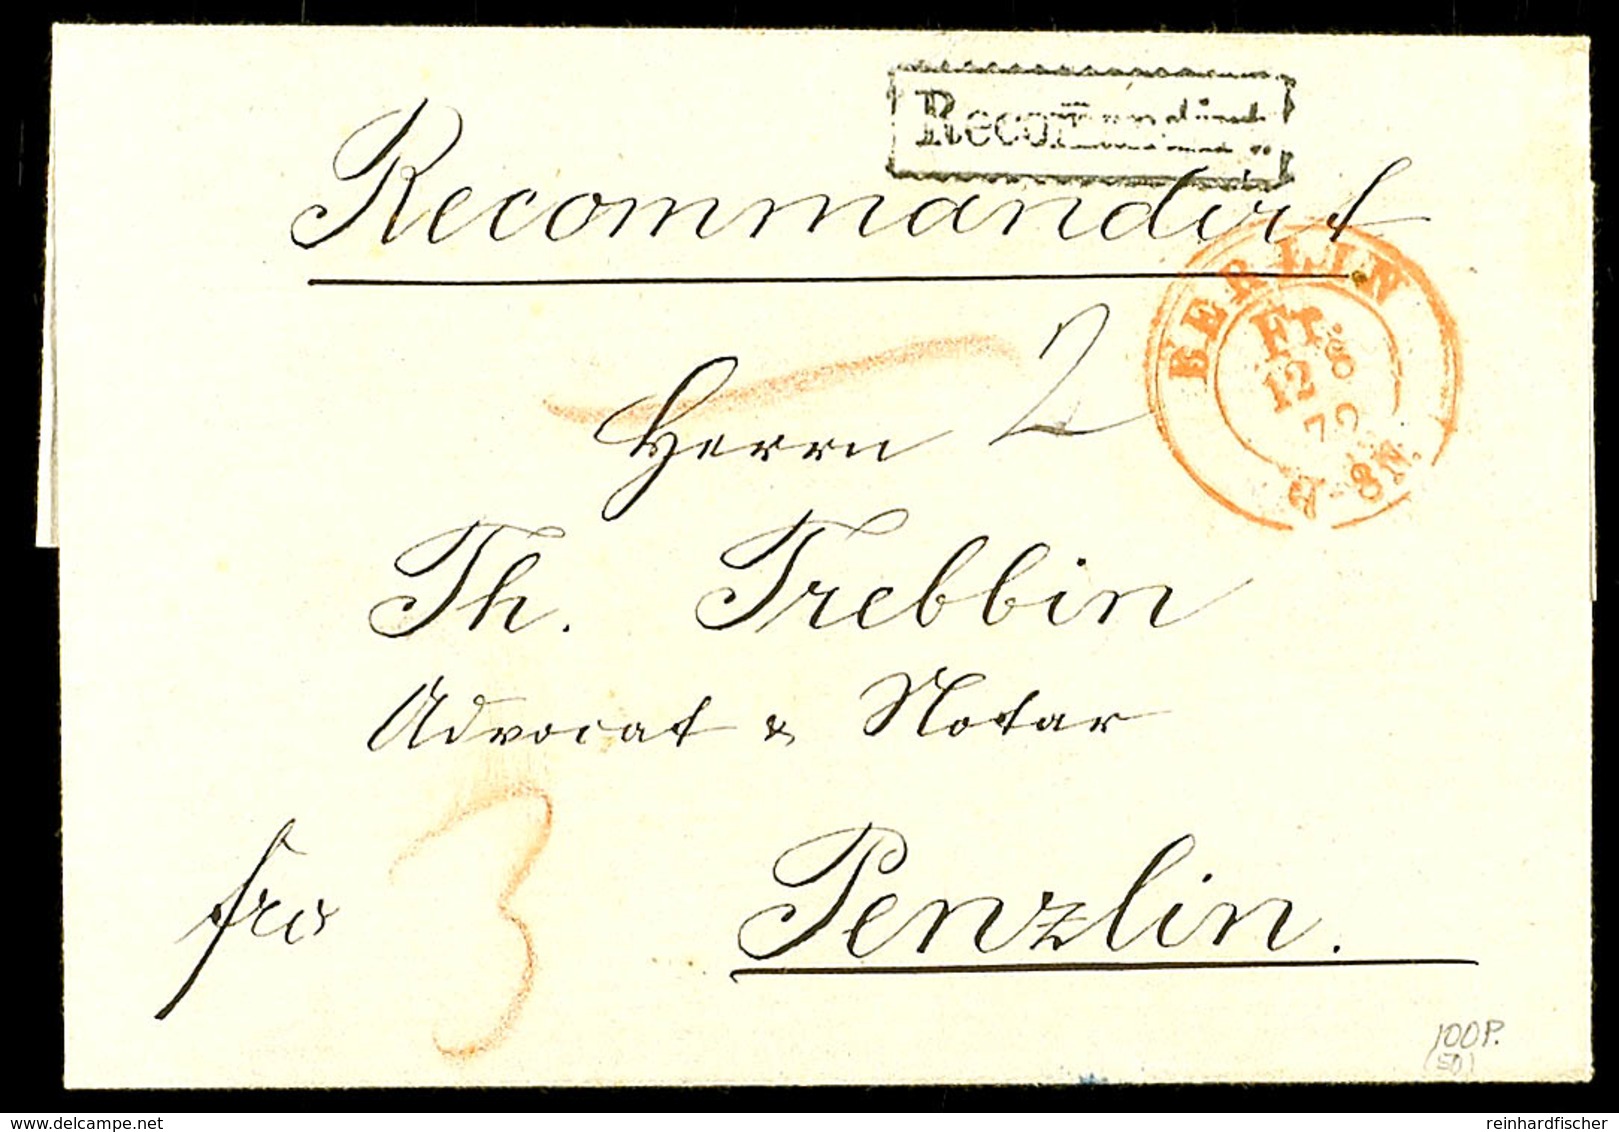 Recommandirt
Recommandirt
BERLIN
Fr.
12 8
72
8N.
2
Herrn
Th. Trebbin
Advocat & Notar
fro 3
Penzlin.
100P.
(50)
www.delcampe.net
reinhardfischer